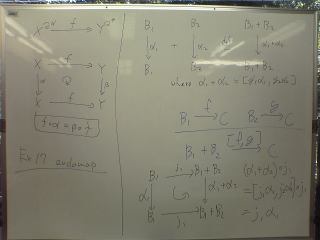 X f Y
X f Y
α β
X f Y
f∘α = β∘f
Ex 17 endomap
B₁ B₂ B₁+B₂
↓α₁ + ↓α₂ ↓α₁+α₂
B₁ B₂ B₁+B₂
where α₁+α₂ = [j₁α₁, j₂α₂]
B₁ f→ C B₂ g→ C
B₁+B₂ [f,g]→ C
B₁ j₁→ B₁+B₂ (α₁+α₂)∘j₁
α₁ ↓α₁+α₂ = [j₁α₁, j₂α₂]∘j₁
B₁ j₁→ B₁+B₂ = j₁α₁